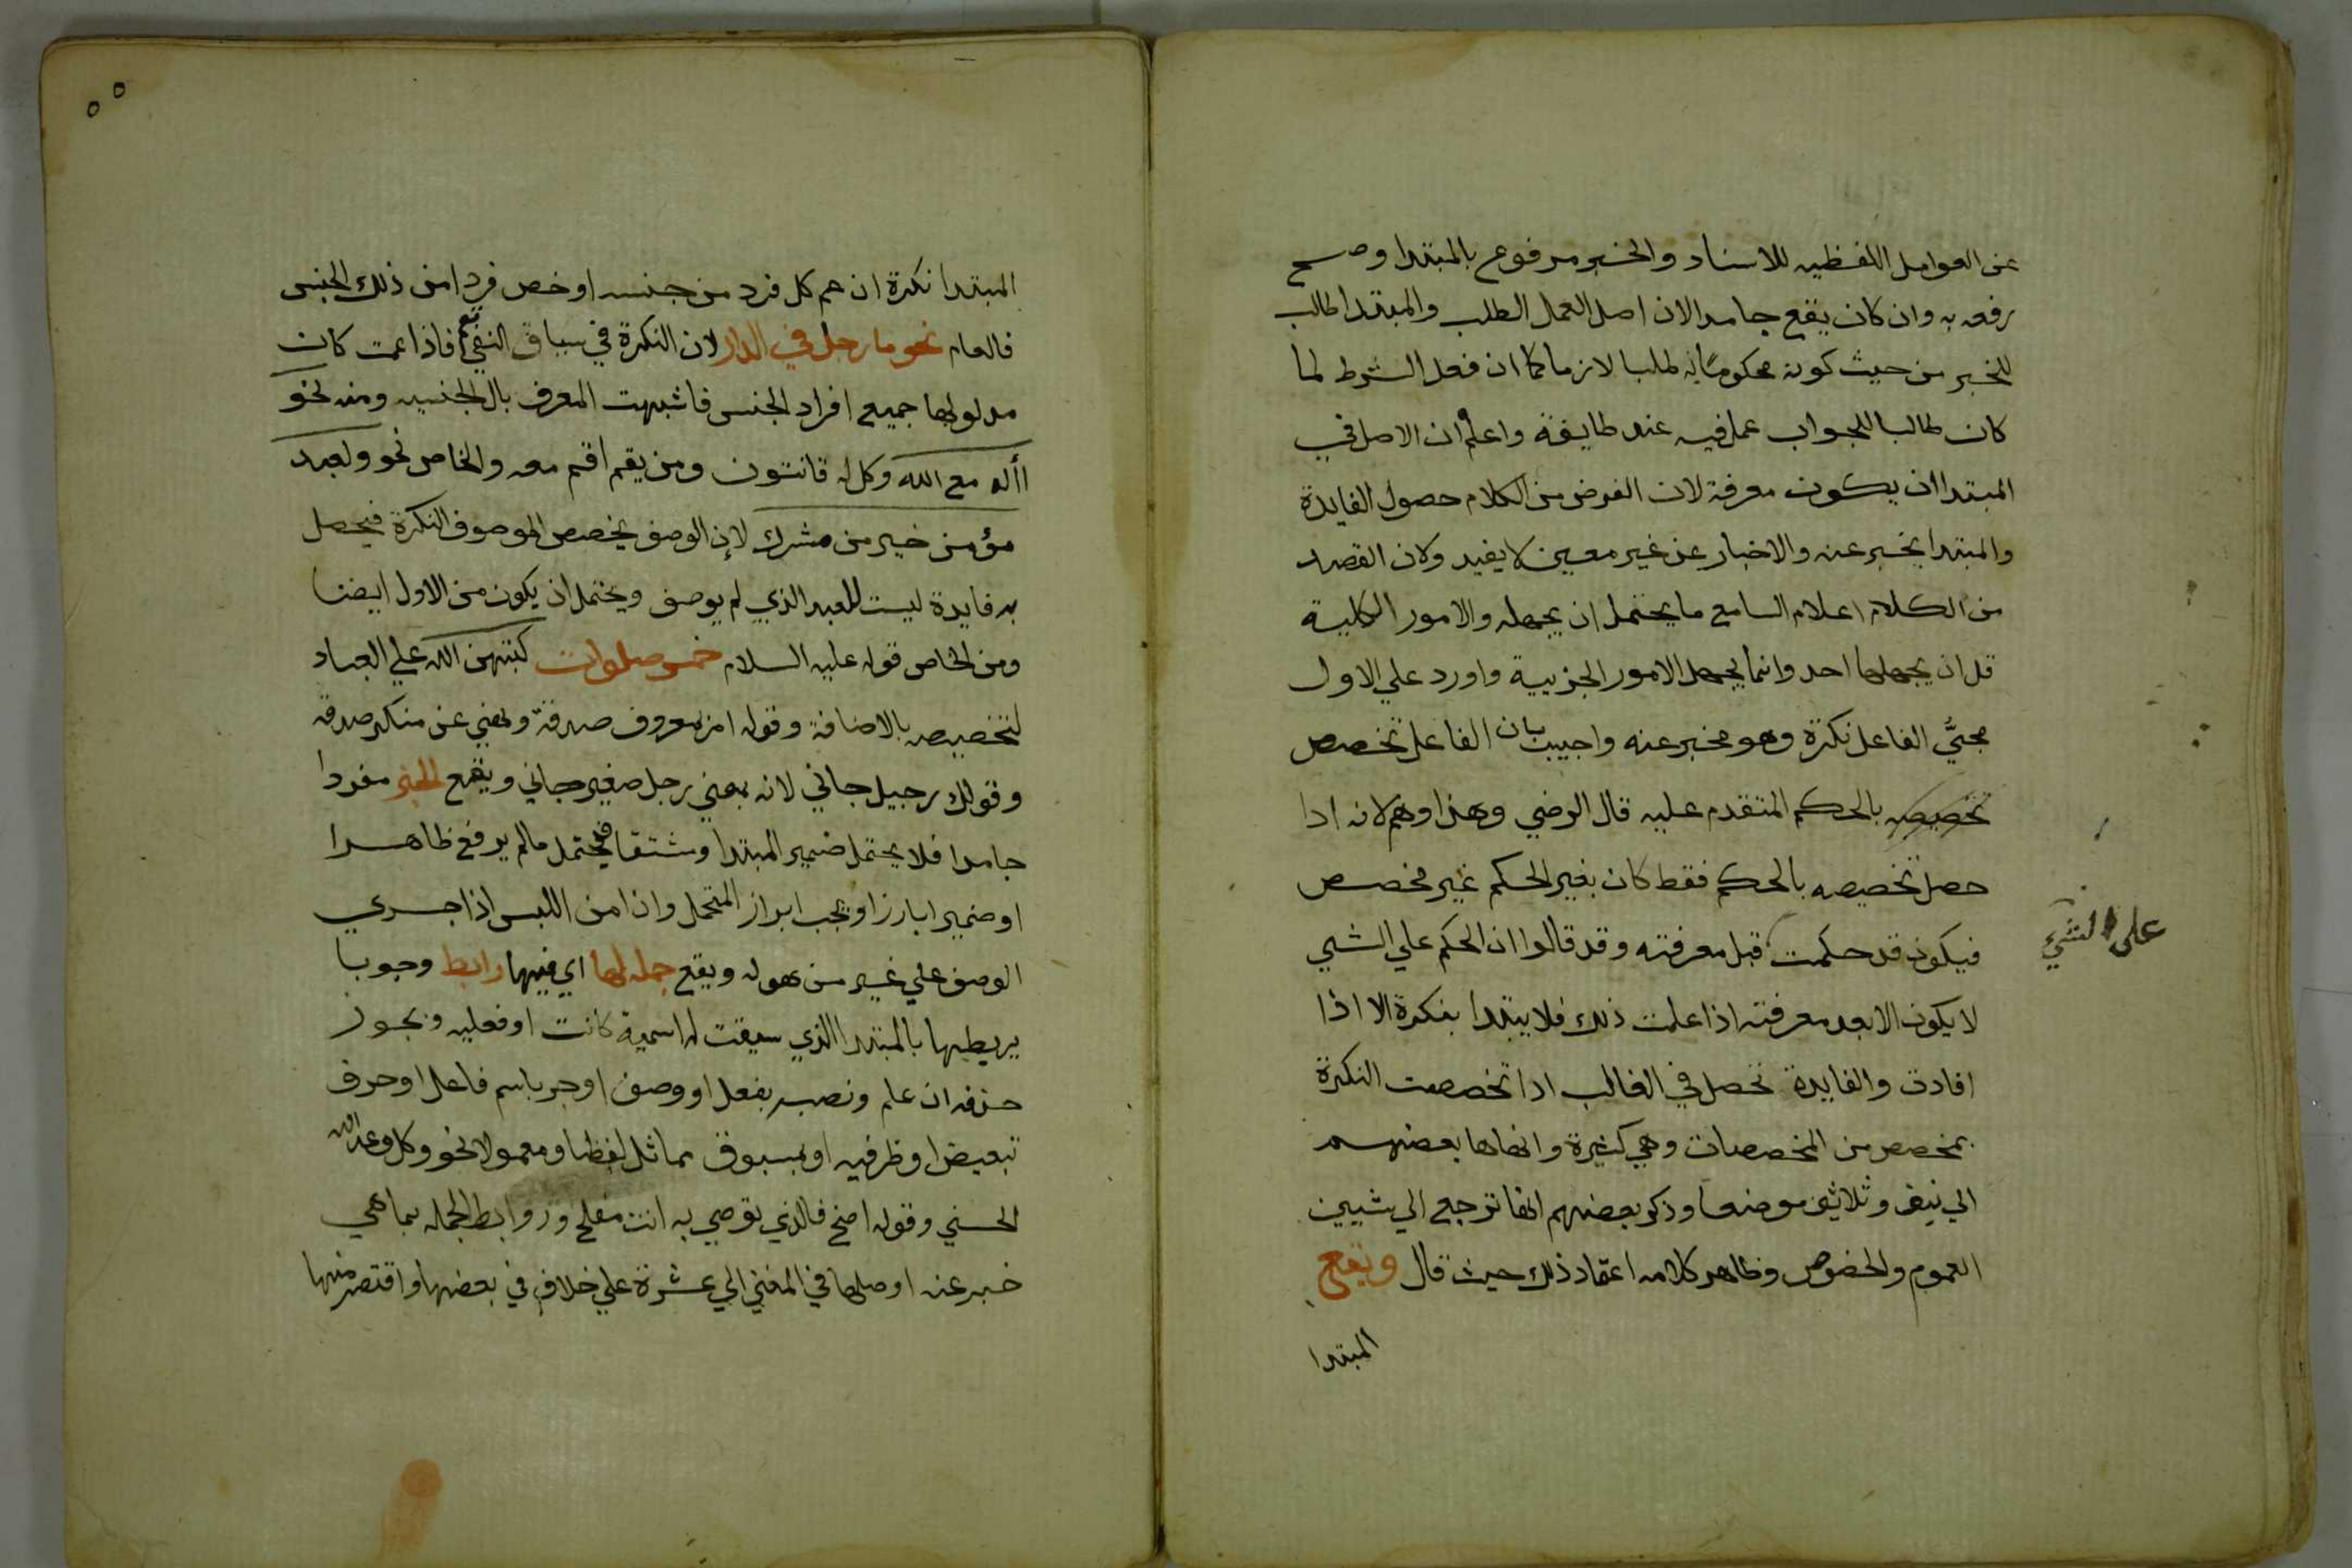 عن العوامل اللفظيه للاسناد والخبر مرفوع بالمبتدا وصح
رفعه به وان كان يقع جامدا لان اصل العمل الطلب والمبتدا طالب
للخبر من حيث كونه محكوما به طلبا لازما كما ان فعل الشرط لما
كان طالبا للجواب عمل فيه عند طايفة واعلم ان الاصل في
المبتدا ان يكون معرفة لان الغرض من الكلام حصول الفايدة
والمبتدا يخبر عنه والاخبار عن غير معين لا يفيد ولان القصد
من الكلام اعلام السامع ما يحتمل ان يجهله والامور الكلية
قل ان يجهلها احد وانما يجهل الامور الجزيية واورد علي الاول
مجيَّ الفاعل نكرة وهو مخبر عنه واجيب بان الفاعل تخصص
تخصيصه بالحكم المتقدم عليه قال الرضي وهذا وهم لانه اذا
حصل تخصيصه بالحكم فقط كان بغير الحكم غير مخصص
فيكون قد حكمت قبل معرفته وقد قالوا ان الحكم علي الشي
على الشيء
لا يكون الا بعد معرفته اذا علمت ذلك فلا يبتدا بنكرة الا اذا
افادت والفايدة تحصل في الغالب اذا تخصصت النكرة
بمخصص من المخصصات وهي كثيرة وانهاها بعضهم
الي نيف وثلاثين موضعا وذكر بعضهم انها ترجع الي شيين
العموم والخصوص وظاهر كلامه اعتماد ذلك حيث قال ويقع
المبتدا
المبتدا نكرة ان عم كل فرد من جنسه او خص فردا من ذلك الجنس
فالعام نحو ما رجل في الدار لان النكرة في سياق النفي تعم فاذا عمت كان
مدلولها جميع افراد الجنس فاشبهت المعرف بال الجنسيه ومنه نحو
أاله مع الله وكل له قانتون ومن يقم اقم معه والخاص نحو ولعبد
مؤمن خير من مشرك لان الوصف يخصص الموصوف النكرة فيحصل
به فايدة ليست للعبد الذي لم يوصف ويحتمل ان يكون من الاول ايضا
ومن الخاص قوله عليه السلام خمس صلوات كتبهن الله علي العباد
لتخصيصه بالاضافة وقوله امر بمعروف صدقة ونهي عن منكر صدقة
وقولك رجيل جاني لانه بمعني رجل صغير جاني ويقع الخبر مفردا
جامدا فلا يحتمل ضمير المبتدا ومشتقا فيحتمل ما لم يرفع ظاهرا
او ضميرا بارزا ويجب ابراز المتحمل وان امن اللبس اذا جري
الوصف علي غير من هو له ويقع جمله لها اي فيها رابط وجوبا
يربطها بالمبتدا الذي سيقت له اسمية كانت او فعليه ويجوز
حذفه ان علم ونصب بفعل او وصف او جر باسم فاعل او حرف
تبعيض او ظرفيه او بمسبوق مماثل لفظا ومعمولا نحو وكل وعد الله
الحسني وقوله اصخ فالذي توصي به انت مفلح وروابط الجمله بما هي
خبر عنه اوصلها في المغني الي عشرة علي خلاف في بعضها واقتصر منها